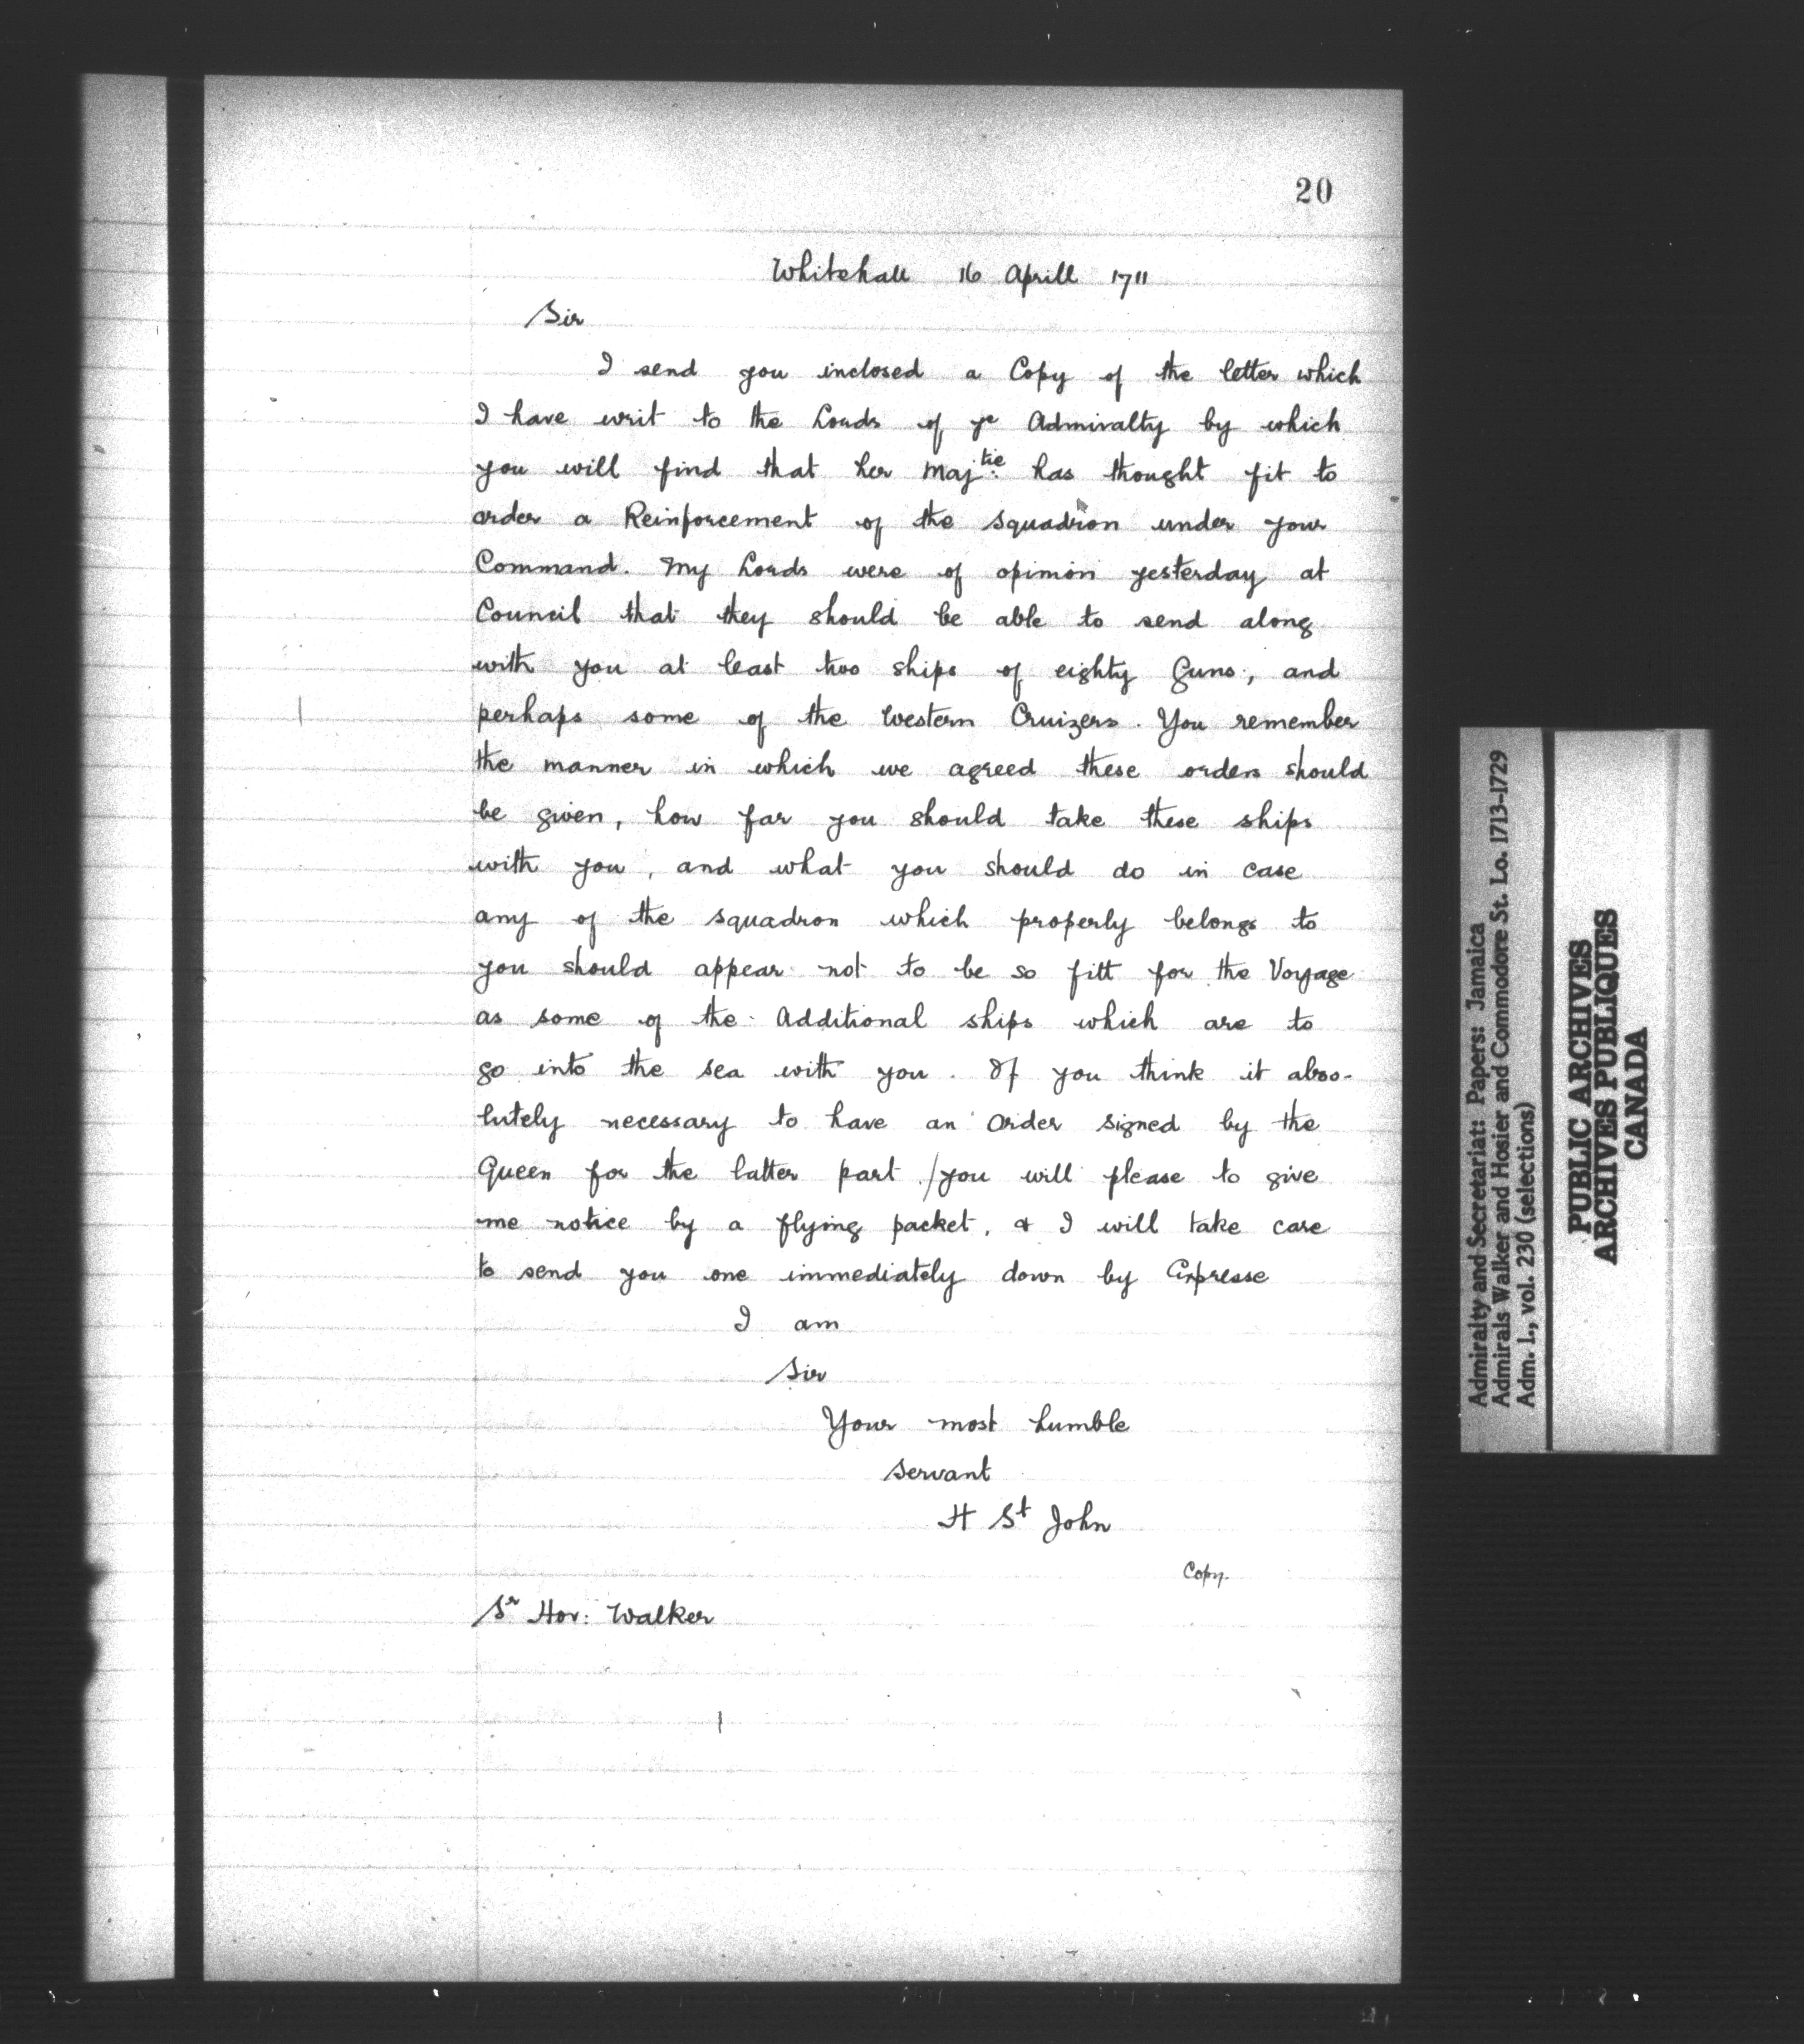 20
Whitehall 16 Aprill 1711
Sir
I send you inclosed a Copy of the letter which
I have writ to the Lords of ye Admiralty by which
you will find that her Majtie has thought fit to
order a Reinforcement of the squadron under your
Command. My Lords were of opinion yesterday at
Council that they should be able to send along
with you at least two ships of eighty Guns, and
perhaps some of the Western Cruizers. You remember
the manner in which we agreed these orders should
be given, how far you should take these ships
with you, and what you should do in case
any of the squadron which properly belongs to
you should appear not to be so fitt for the Voyage
as some of the Additional ships which are to
go into the sea with you. If you think it abso-
lutely necessary to have an Order signed by the
Queen for the latter part / you will please to give
me notice by a flying packet, & I will take care
to send you one immediately down by Expresse
I am
Sir
Your most humble
Servant
H St John
Copy.
Sr Hov: Walker
Admiralty and Secretariat: Papers: Jamaica
Admirals Walker and Hosier and Commodore St. Lo. 1713-1729
Adm. 1., vol. 230 (selections)
PUBLIC ARCHIVES
ARCHIVES PUBLIQUES
CANADA